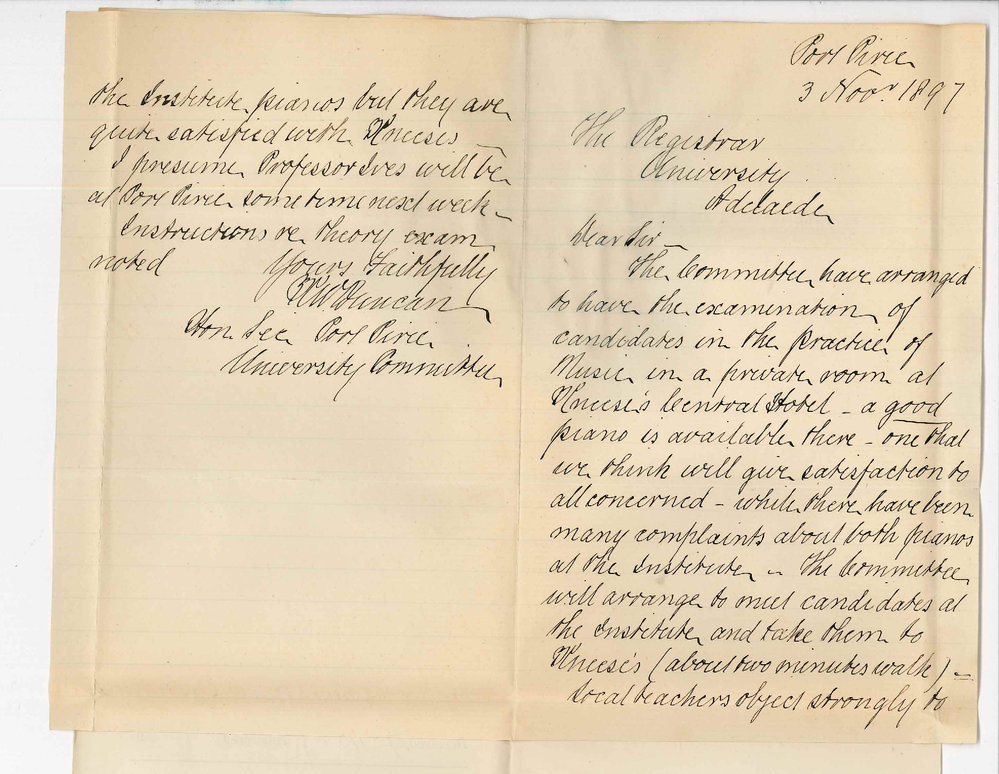 Port Pirie
3 Novr. 1897
The Registrar
University
Adelaide
Dear Sir -
The Committee have arranged
to have the examination of
candidates in the practice of
Music in a private room at
Kneese's Central Hotel - a good
piano is available there - one that
we think will give satisfaction to
all concerned - while there have been
many complaints about both pianos
at the Institute - The Committee
will arrange to meet candidates at
the Institute and take them to
Kneese's (about two minutes walk) -
Local teachers object strongly to
the Institute pianos but they are
quite satisfied with Kneeses -
I presume Professor Ives will be
at Port Pirie sometime next week -
Instructions re theory exam
noted
Yours Faithfully
Duncan
Hon Sec Port Pirie
University Committee